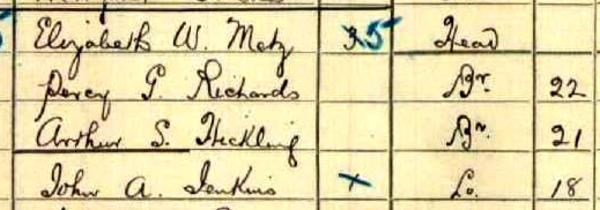 Elizabeth W. Metz 35 Head
Percy G. Richards Br. 22
Arthur S. Hickling Br. 21
John A. Jenkins + Lo. 18